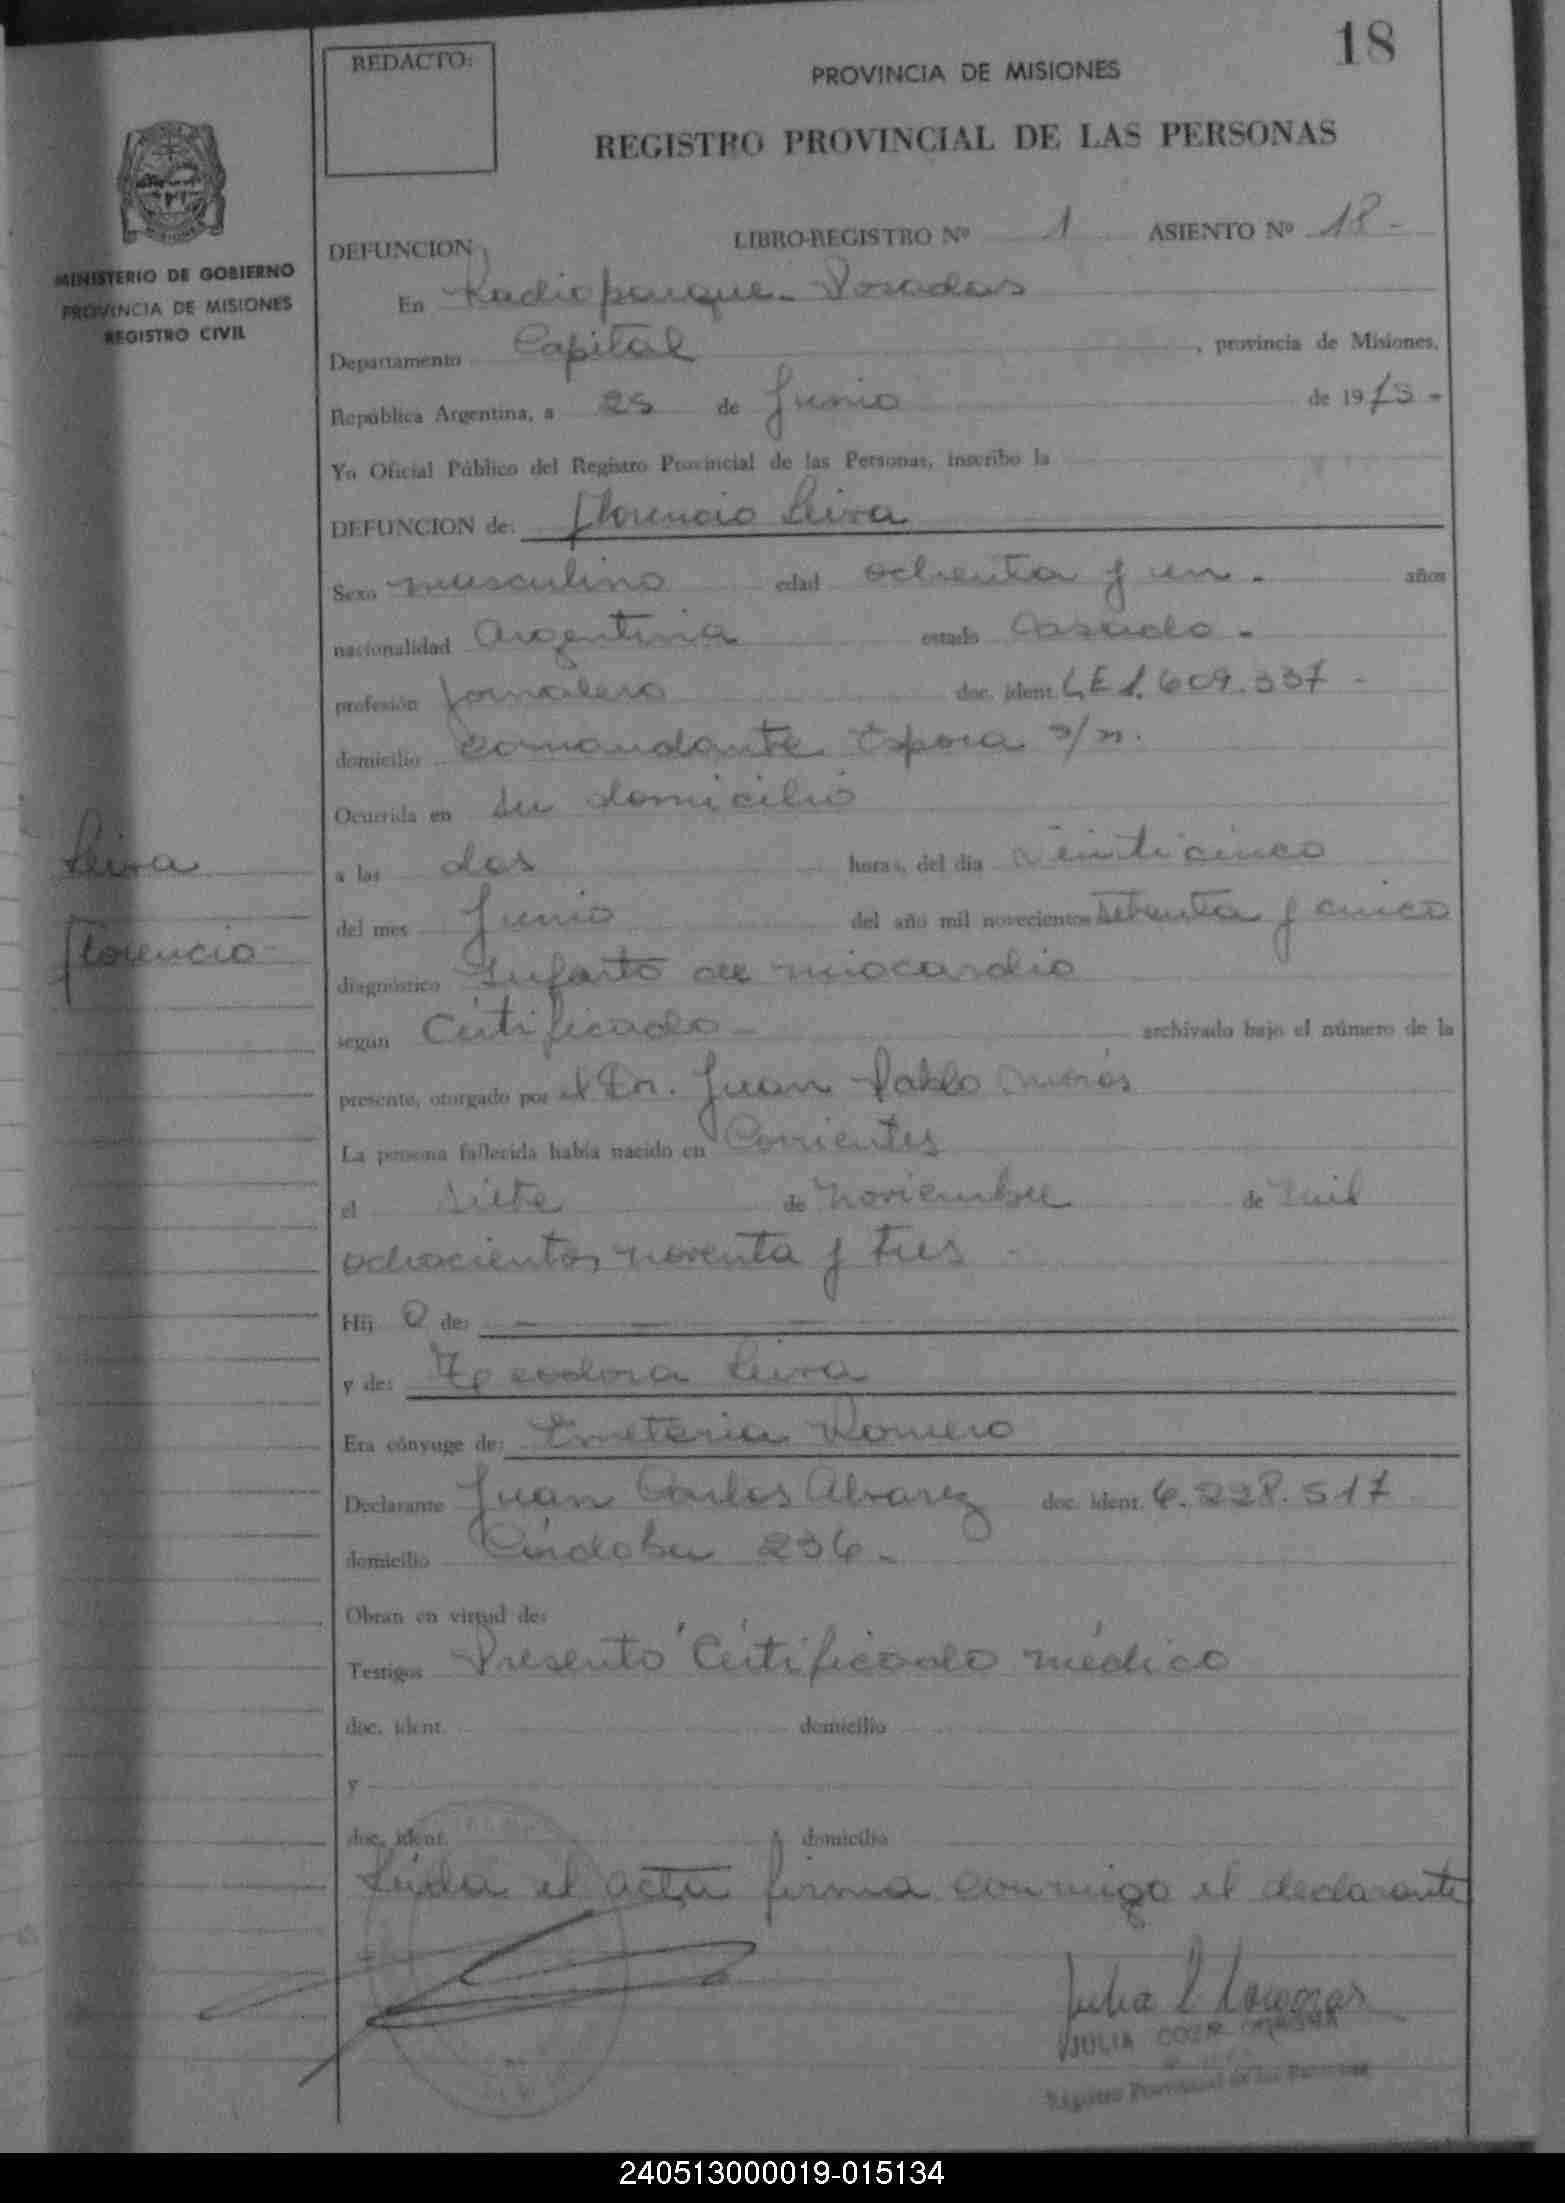 18
REDACTO:
PROVINCIA DE MISIONES
REGISTRO PROVINCIAL DE LAS PERSONAS
MINISTERIO DE GOBIERNO
PROVINCIA DE MISIONES
REGISTRO CIVIL
DEFUNCION
LIBRO-REGISTRO Nº 1 ASIENTO Nº 18-
En Radioparque - Posadas
Departamento Capital, provincia de Misiones,
República Argentina, a 25 de Junio de 1975-
Yo Oficial Público del Registro Provincial de las Personas, inscribo la
DEFUNCION de: Florencio Leiva
Sexo masculino edad ochenta y un- años
nacionalidad Argentina estado Casado-
profesión Jornalero doc. ident. LE 1.609.337-
domicilio Comandante Espora s/n.
Ocurrida en su domicilio
a las dos horas, del día veinticinco
del mes Junio del año mil novecientos setenta y cinco
diagnóstico Infarto de miocardio
según Certificado- archivado bajo el número de la
presente, otorgado por el Dr. Juan Pablo
La persona fallecida había nacido en Corrientes
el siete de noviembre de mil
ochocientos noventa y tres-
Hij o de: - - -
y de: Teodora Leiva
Era cónyuge de: Emeteria Romero
Declarante Juan Carlos Alvarez doc. ident. 6.228.517
domicilio Córdoba 236-
Obran en virtud de:
Testigos Presentó Certificado médico
doc. ident. domicilio
y
doc. ident. domicilio
Leída el acta firma conmigo el declarante
Leiva
Florencio-
JULIA
Registro Provincial de las Personas
240513000019-015134